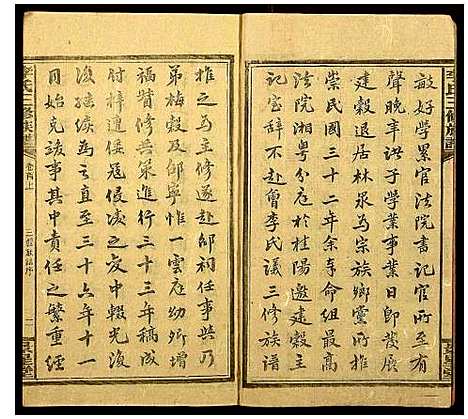 敏好学累官法院書记官所至有
聲晚年洪子學業事業日即發展
建毅退居林泉為宗族鄉黨所推
崇民國三十二年余奉命組最高
法院湘粵分庭於桂陽邀建毅主
记室辞不赴會李氏議三修族譜
推之為主修遂赴邵祠任事與乃
弟梅毅及邵寧惟一雲庄幼卿增
福贊修共策進行三十三年稿成
付梓遭倭寇侵凌之哀中輟光復
後繼續為之直至三十六年十一
月始克竣事其中責任之繁重經
李氏三修族譜
卷首上